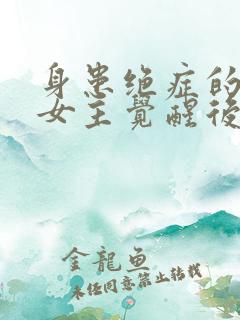 身患绝症的
女主覺醒後
金龍鱼
未经同意禁止转载